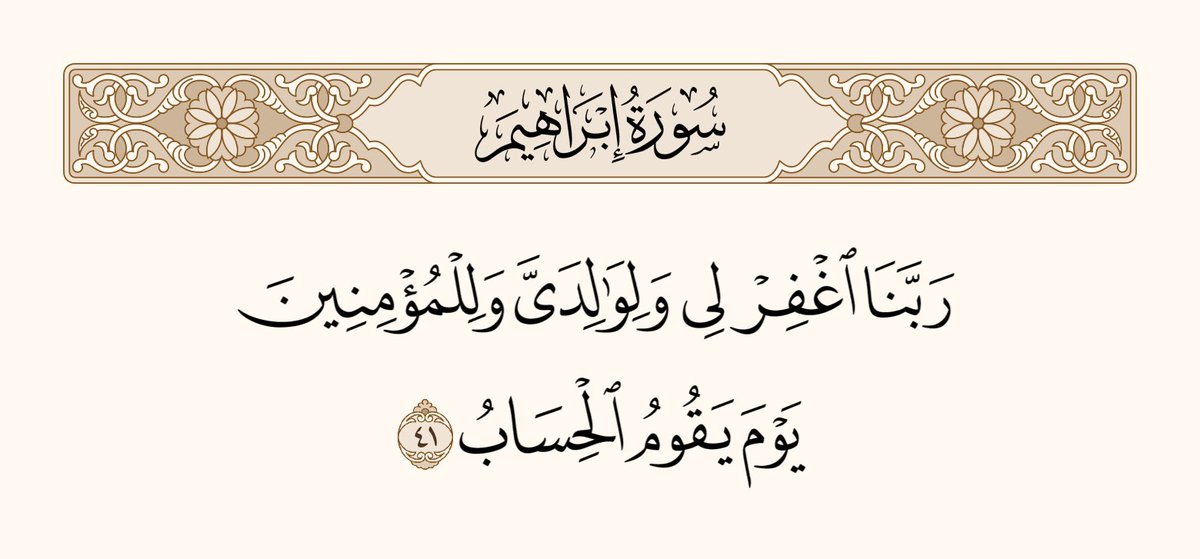 سُورَةُ إِبْرَاهِيمَ
رَبَّنَا ٱغْفِرْ لِى وَلِوَٰلِدَىَّ وَلِلْمُؤْمِنِينَ
يَوْمَ يَقُومُ ٱلْحِسَابُ ٤١